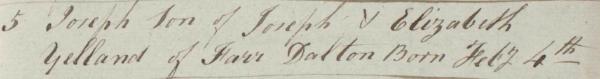 5 Joseph Son of Joseph & Elizabeth
Yelland of Farr Dalton Born Feby 4th